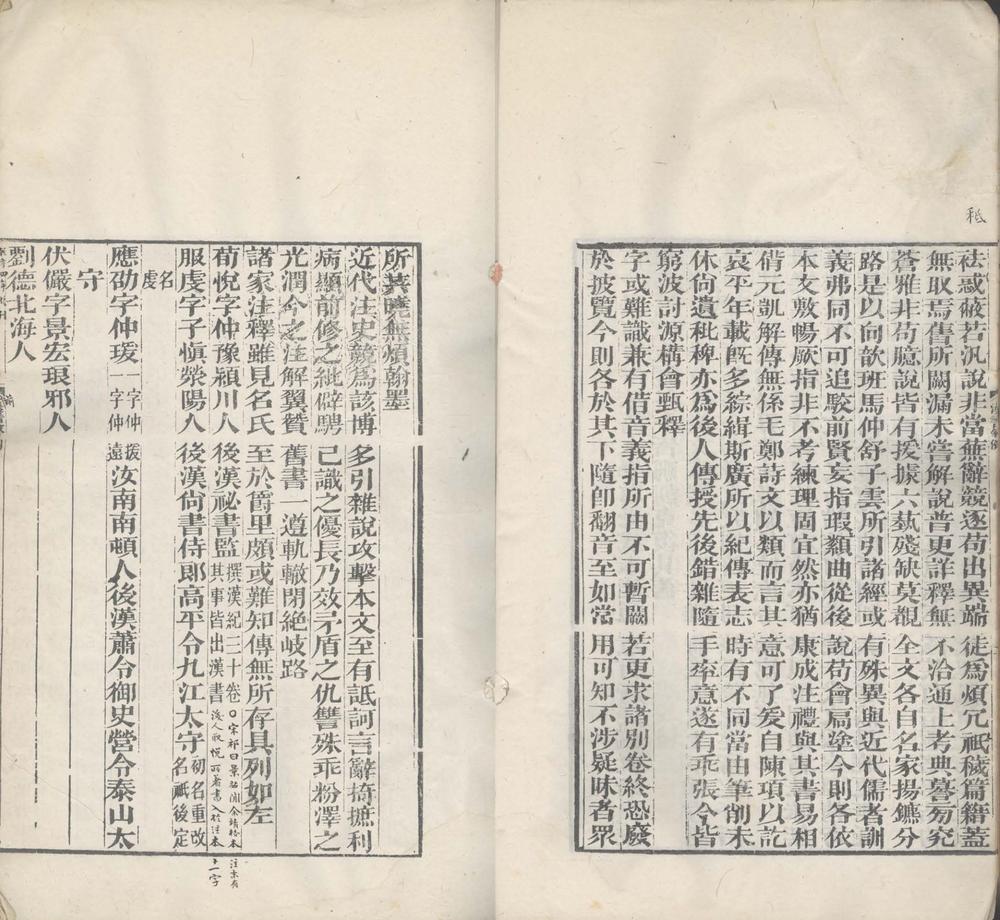 祛惑蔽若汎說非當蕪辭競逐苟出異端徒爲煩冗祇穢篇籍蓋
無取焉舊所闕漏未嘗解說普更詳釋無不洽通上考典謩旁究
蒼雅非苟臆說皆有援據六藝殘缺莫覩全文各自名家揚鑣分
路是以向歆班馬仲舒子雲所引諸經或有殊異與近代儒者訓
義弗同不可追駮前賢妄指瑕纇曲從後說苟會扃塗今則各依
本文敷暢厥指非不考練理固宜然亦猶康成注禮與其書易相
偝元凱解傳無係毛鄭詩文以類而言其意可了爰自陳項以訖
哀平年載旣多綜緝斯廣所以紀傳表志時有不同當由筆削未
休尙遺秕稗亦爲後人傳授先後錯雜隨手率意遂有乖張今皆
窮波討源構會甄釋
字或難識兼有借音義指所由不可暫闕若更求諸別卷終恐廢
於披覽今則各於其下隨卽翻音至如常用可知不涉疑昧者眾
秪
所共曉無煩翰墨
近代注史競爲該博多引雜說攻擊本文至有詆訶言辭掎摭利
病顯前修之紕僻騁己識之優長乃效矛盾之仇讐殊乖粉澤之
光潤今之注解翼贊舊書一遵軌轍閉絕岐路
諸家注釋雖見名氏至於爵里頗或難知傳無所存具列如左
荀悅字仲豫潁川人後漢祕書監撰漢紀三十卷其事皆出漢書
○宋祁曰景祐閒余靖校本注末有
後人取悅所著書入於注本十一字
服虔字子愼滎陽人後漢尙書侍郎高平令九江太守初名重改名祇後定
名虔
應劭字仲瑗一字仲援一字仲遠汝南南頓人後漢蕭令御史營令泰山太
守
伏儼字景宏琅邪人
劉德北海人